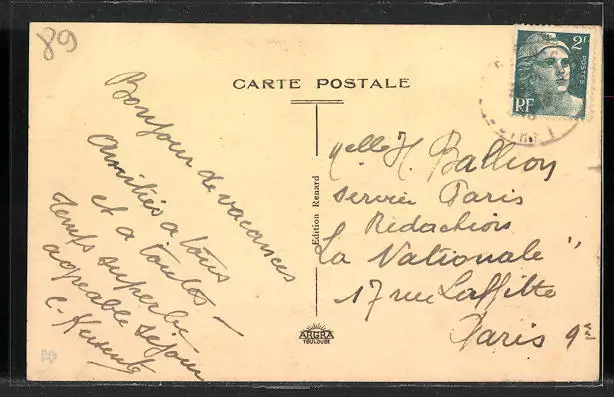 89
CARTE POSTALE
2F
POSTES
RF
Bonjour de vacances
amitiés à tous
et à toutes —
Temps superbe
agréable séjour
C.
Edition Renard
ARGRA
TOULOUSE
Melle H. Ballion
Service Paris
Rédactions
"La Nationale"
17 rue Laffitte
Paris 9e